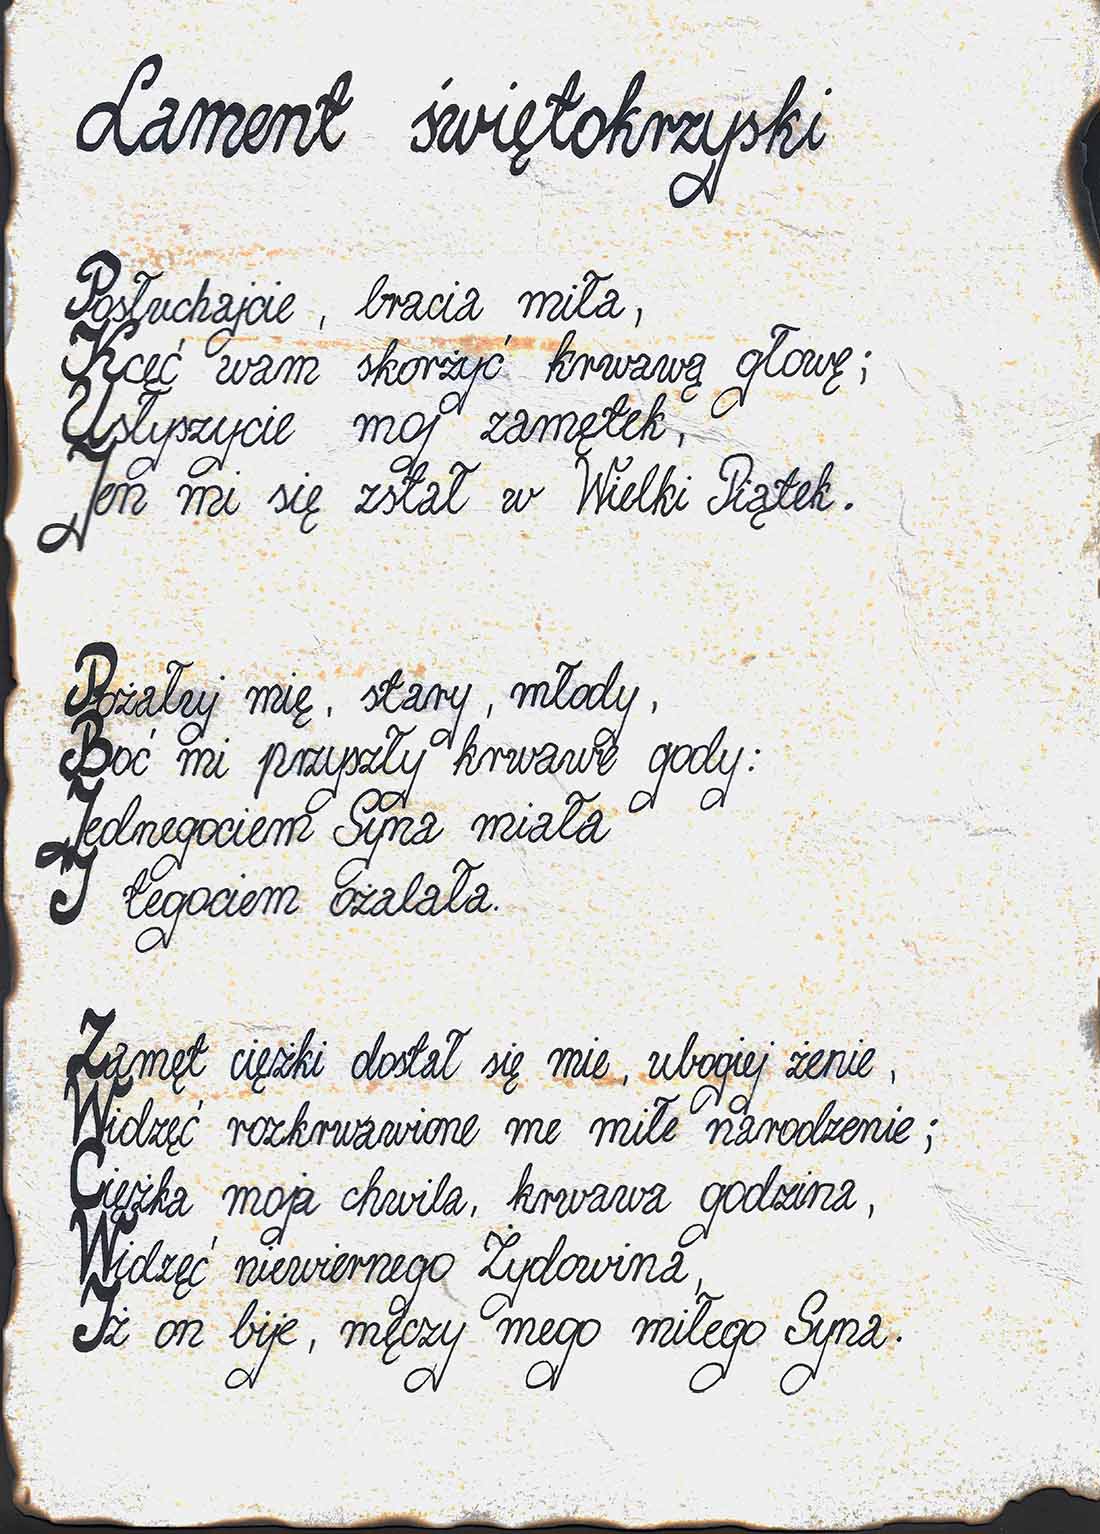 Lament świętokrzyski
Posłuchajcie, bracia miła,
Kcęć wam skorżyć krwawą głowę;
Usłyszycie moj zamętek,
Jen mi się zstał w Wielki Piątek.
Pożałuj mię, stary, młody,
Boć mi przyszły krwawe gody:
Jednegociem Syna miała
I tegociem ożalała.
Zamęt ciężki dostał się mie, ubogiej żenie,
Widzęć rozkrwawione me miłe narodzenie;
Ciężka moja chwila, krwawa godzina,
Widzęć niewiernego Żydowina,
Iż on bije, męczy mego miłego Syna.